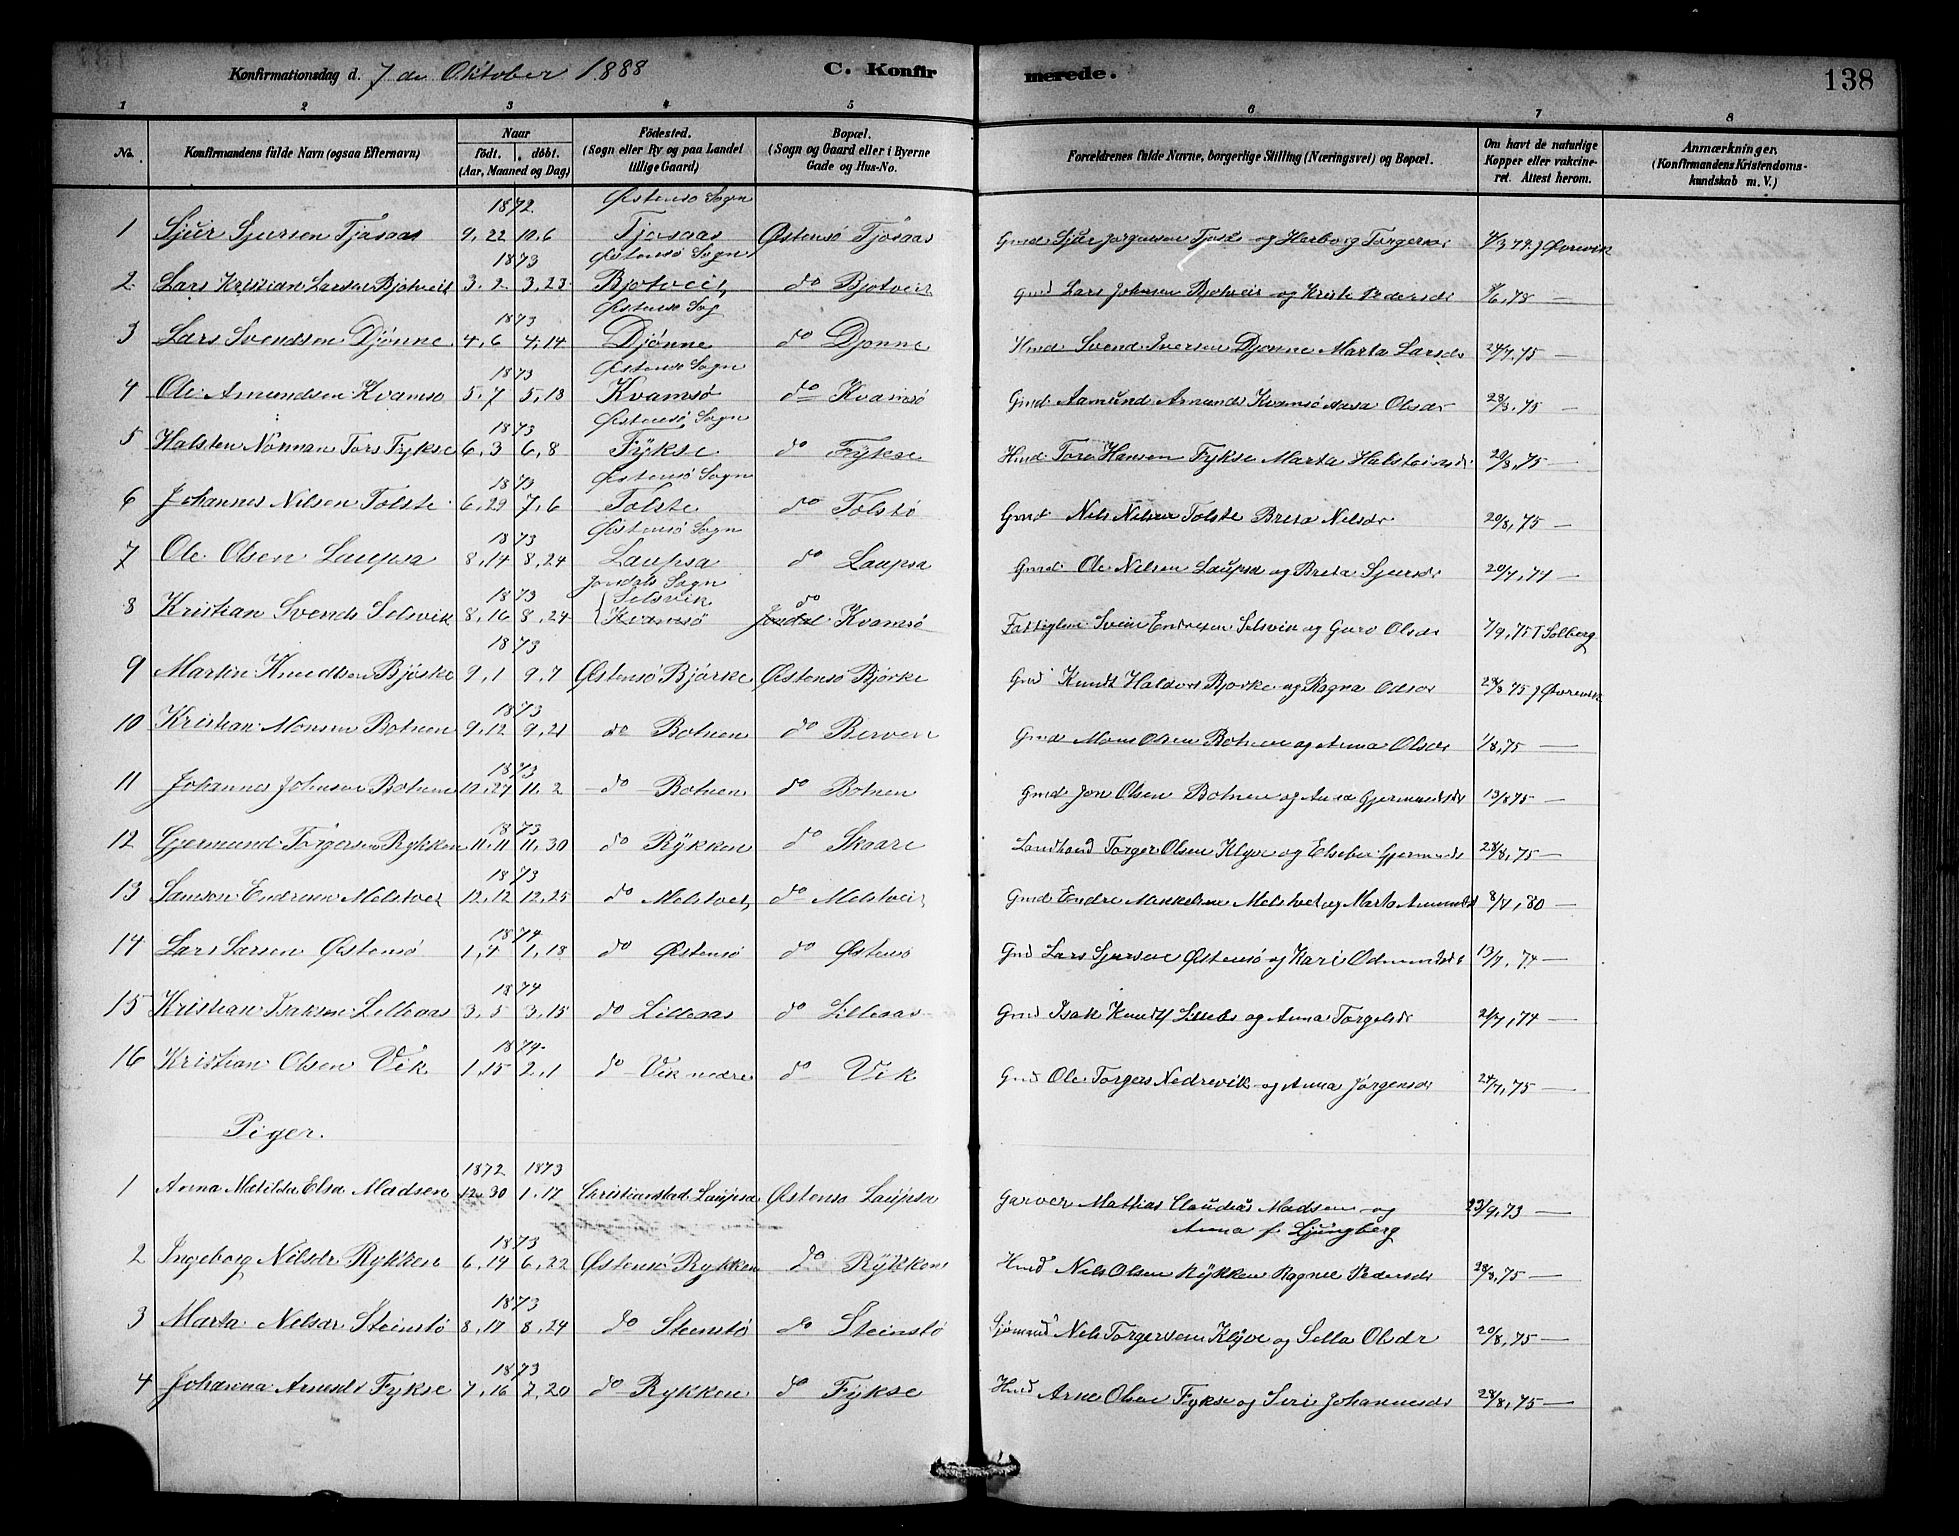 Konfirmationsdag d. 7 de Oktober 1888 C. Konfirmerede. 138
1 2 3 4 5 6 7 8
No. Konfirmandens fulde Navn (ogsaa Efternavn) Naar født. døbt. (Aar, Maaned og Dag) Fødested. (Sogn eller By og paa Landet tillige Gaard) Bopæl. (Sogn og Gaard eller i Byerne Gade og Hus-No. Forældrenes fulde Navne, borgerlige Stilling (Næringsvei) og Bopæl. Om havt de naturlige Kopper eller vakcineret. Attest herom. Anmærkninger. (Konfirmandens Kristendomskundskab m. V.)
1872 Østensø Sogn
1 Sjur Sjursen Tjosaas 9,22 10,6 Tjosaas Østensø Tjosaas Gmd Sjur Jørgensen Tjosås og Harborg Torgersdr J Øvrevik
1873 Østensø Sogn
2 Lars Kristian Larsen Bjotveit 3,2 3,23 Bjotveit do Bjotveit Gmd Lars Johnsen Bjotveit og Kristi Pedersdr 8/6,78 —
1873 Østensø Sog
3 Lars Svendsen Djønne 4,6 4,14 Djønne do Djønne Hmd Svend Iversen Djønne Marta Larsdr 24/7,75 —
1873 Østensø Sogn
4 Ole Amundsen Kvamsø 5,7 5,13 Kvamsø do Kvamsø Gmd Aamund Amunds Kvamsø Aasa Olsdr 28/8,75 —
1873 Østensø Sogn
5 Halsten Norman Tors Fykse 6,3 6,8 Fykse do Fykse Hmd Tore Hansen Fykse Marta Halsteinsdr 20/8,75 —
1873 Østensø Sogn
6 Johannes Nilsen Tolste 6,29 7,6 Tolste do Tolstø Gmd Nils Nilsen Tolste Brita Nilsdr 20/8,75 —
1873 Østensø Sogn
7 Ole Olsen Laupsa 8,14 8,24 Laupsa do Laupsa Gmd Ole Nilsen Laupsa og Brita Sjursdr 20/7,74 —
1873 Jondals Sogn Selsvik do
8 Kristian Svends Selsvik 8,16 8,24 Kvamsø Jondal Kvamsø Fattiglem Svein Endresen Selsvik og Guro Olsdr 7/9,75 T Solberg
1873
9 Martin Knudtsen Bjørke 9,1 9,7 Østensø Bjørke Østensø Bjørke Gmd Knudt Haldors Bjørke og Ragna Odsdr 28/8 75 J Øvrevik
1873
10 Kristian Monsen Botnen 9,12 9,21 do Botnen do Berven Gmd Mons Olsen Botnen og Anna Olsdr 1/8,75 —
1873
11 Johannes Johnsen Botnen 10,27 11,2 do Botnen do Botnen Gmd Jon Olsen Botnen og Anna Gjermundsdr 13/8 75 —
1873
12 Gjermund Torgersen Rykken 11,11 11,30 do Rykken do Skaare Landhand Torger Olsen Klyve og Elseber Gjermunds 28/8,75 —
1873
13 Samson Endresen Melstvet 12,12 12,25 do Melstvet do Melstveit Gmd Endre Mikkelsen Melstvet og Marta Amundsd 8/7,80 —
1874
14 Lars Larsen Østensø 1,4 1,18 do Østensø do Østensø Gmd Lars Sjursen Østensø og Kari Odmundsdr 13/7,74 —
1874
15 Kristian Isaksen Lilleaas 3,5 3,15 do Lilleaas do Lilleaas Gmd Isak Knudts Lilleås og Anna Torgelsdr 21/7,74 —
1874
16 Kristian Olsen Vik 1,15 2,1 do Vik nedre do Vik Gmd Ole Torgers Nedrevik og Anna Jørgensdr 24/7,75 —
Piger.
1872 1873
1 Anna Matilda Elsa Madsen 12,30 1,17 Christianstad Laupsa Østensø Laupsa Garver Mathias Claudius Madsen og 23/9,73 —
Anna f. Ljungberg
1873
2 Ingeborg Nilsdr Rykken 6,19 6,22 Østensø Rykken do Rykken Hmd Nils Olsen Rykken Ragnle Pedersdr 28/8,75 —
1873
3 Marta Nilsdr Steinstø 8,17 8,24 do Steinstø do Steinstø Sjømand Nels Torgersen Klyve og Sella Olsdr 20/8,75 —
1873
4 Johanna Arnesdr Fykse 7,16 7,20 do Rykken do Fykse Hmd Arne Olsen Fykse og Siri Johannesdr 28/8,75 —